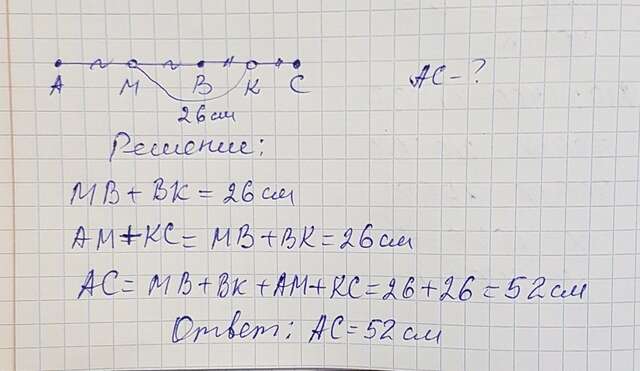 A M B K C
AC - ?
26 см
Решение:
MB + BK = 26 см
AM + KC = MB + BK = 26 см
AC = MB + BK + AM + KC = 26 + 26 = 52 см
Ответ: AC = 52 см